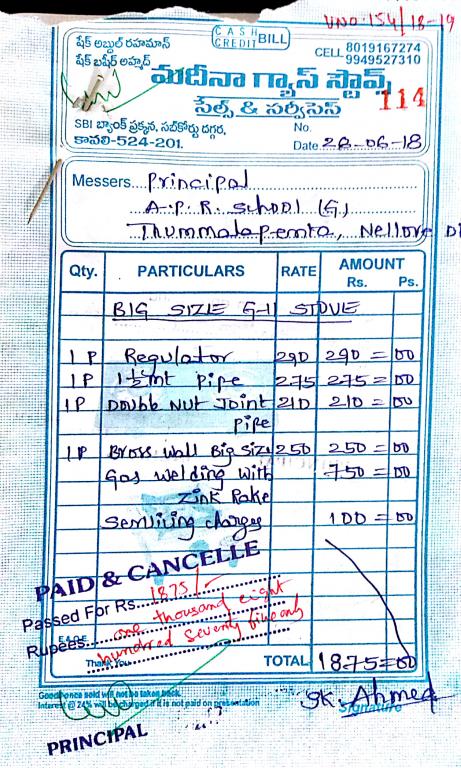 V.NO:154/18-19
CASH
CREDIT BILL
షేక్ అబ్దుల్ రహమాన్
షేక్ బషీర్ అహ్మద్
CELL 8019167274
9949527310
మదీనా గ్యాస్ స్టౌవ్స్
సేల్స్ & సర్వీసెస్
114
SBI బ్యాంక్ ప్రక్కన, సబ్‌కోర్టు దగ్గర,
కావలి-524-201.
No.
Date 28-06-18
Messers Principal
A.P.R. School (G)
Thummalapenta, Nellore D
Qty. PARTICULARS RATE AMOUNT
Rs. Ps.
BIG SIZE G-11 STOVE
1 P Regulator 290 290=00
1 P 1½mt Pipe 275 275=00
1 P Doubb Nut Joint 210 210=00
Pipe
1 P Bross wall Big Size 250 250=00
Gas welding with 750=00
Zink Rake
Serviving charges 100=00
PAID & CANCELLE
Passed For Rs. 1875/-
Rupees one thousand eight
hundred seventy five only
E.&.O.E.
Thank You
TOTAL 1875=00
Goods once sold will not be taken back.
Interest @ 24% will be charged if it is not paid on presentation
SK. Ahmed
Signature
PRINCIPAL